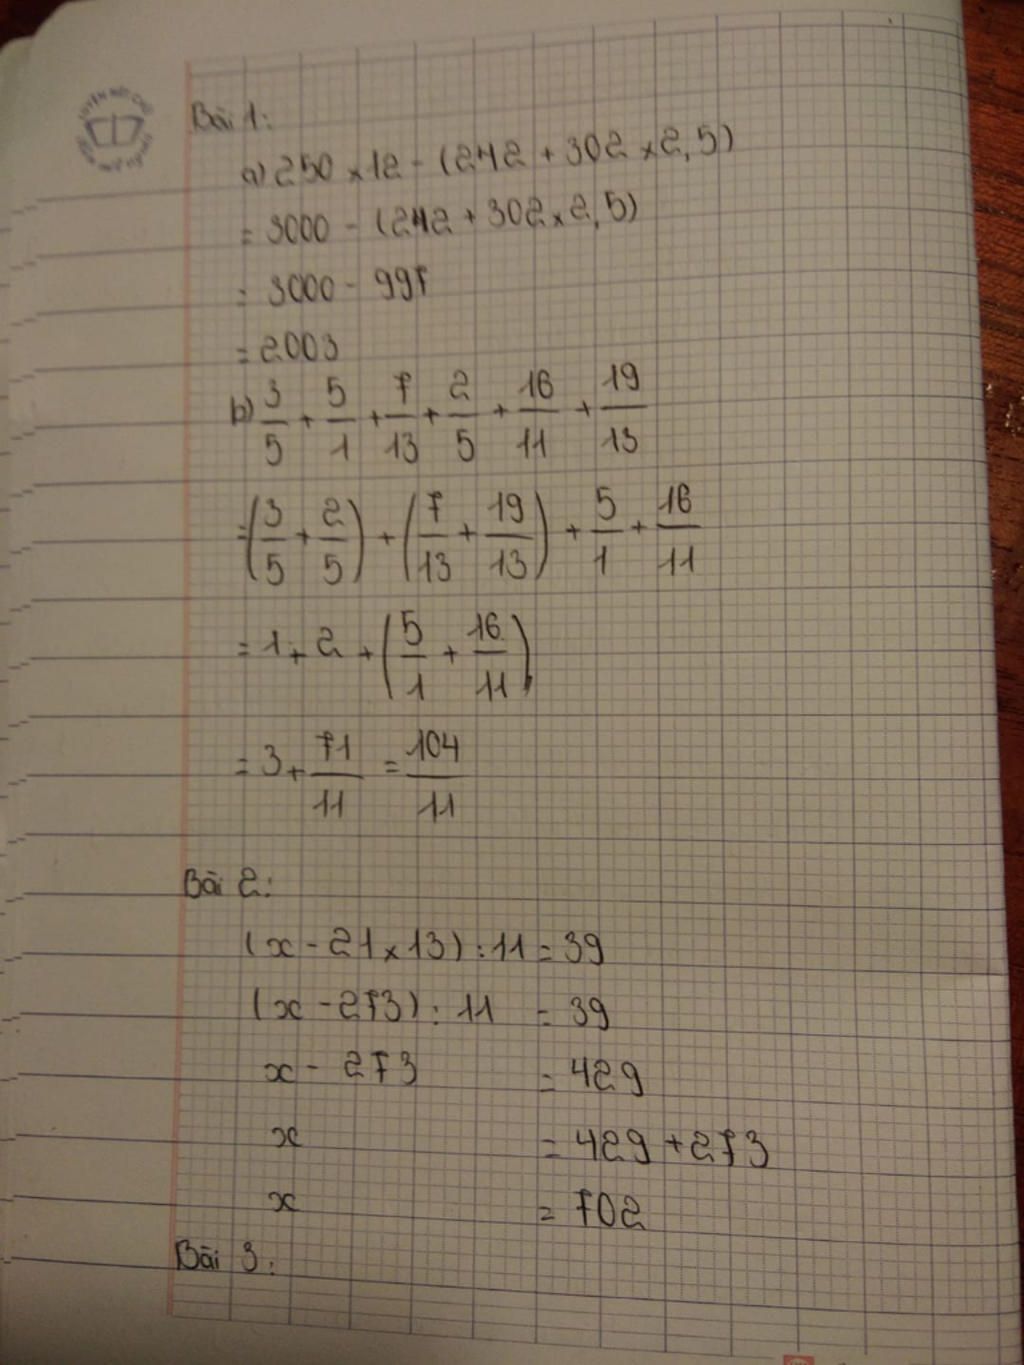 Bài 1:
a) 250 x 12 - (242 + 302 x 2,5)
= 3000 - (242 + 302 x 2,5)
= 3000 - 997
= 2003
b) 3/5 + 5/1 + 7/13 + 2/5 + 16/11 + 19/13
= (3/5 + 2/5) + (7/13 + 19/13) + 5/1 + 16/11
= 1 + 2 + (5/1 + 16/11)
= 3 + 71/11 = 104/11
Bài 2:
(x - 21 x 13) : 11 = 39
(x - 273) : 11 = 39
x - 273 = 429
x = 429 + 273
x = 702
Bài 3: